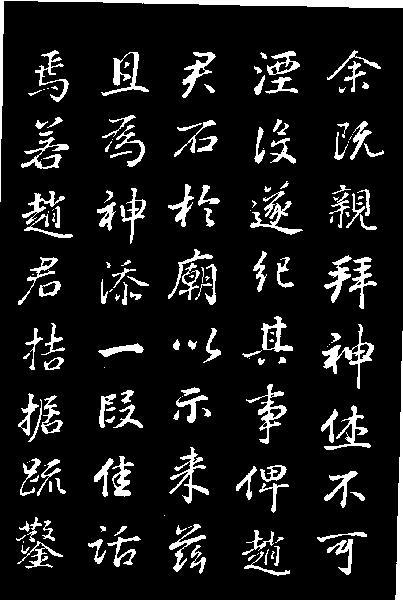 余既親拜神休不可
湮没遂纪其事俾趙
君石於廟以示来兹
且為神添一段佳話
焉若趙君拮据疏鑿